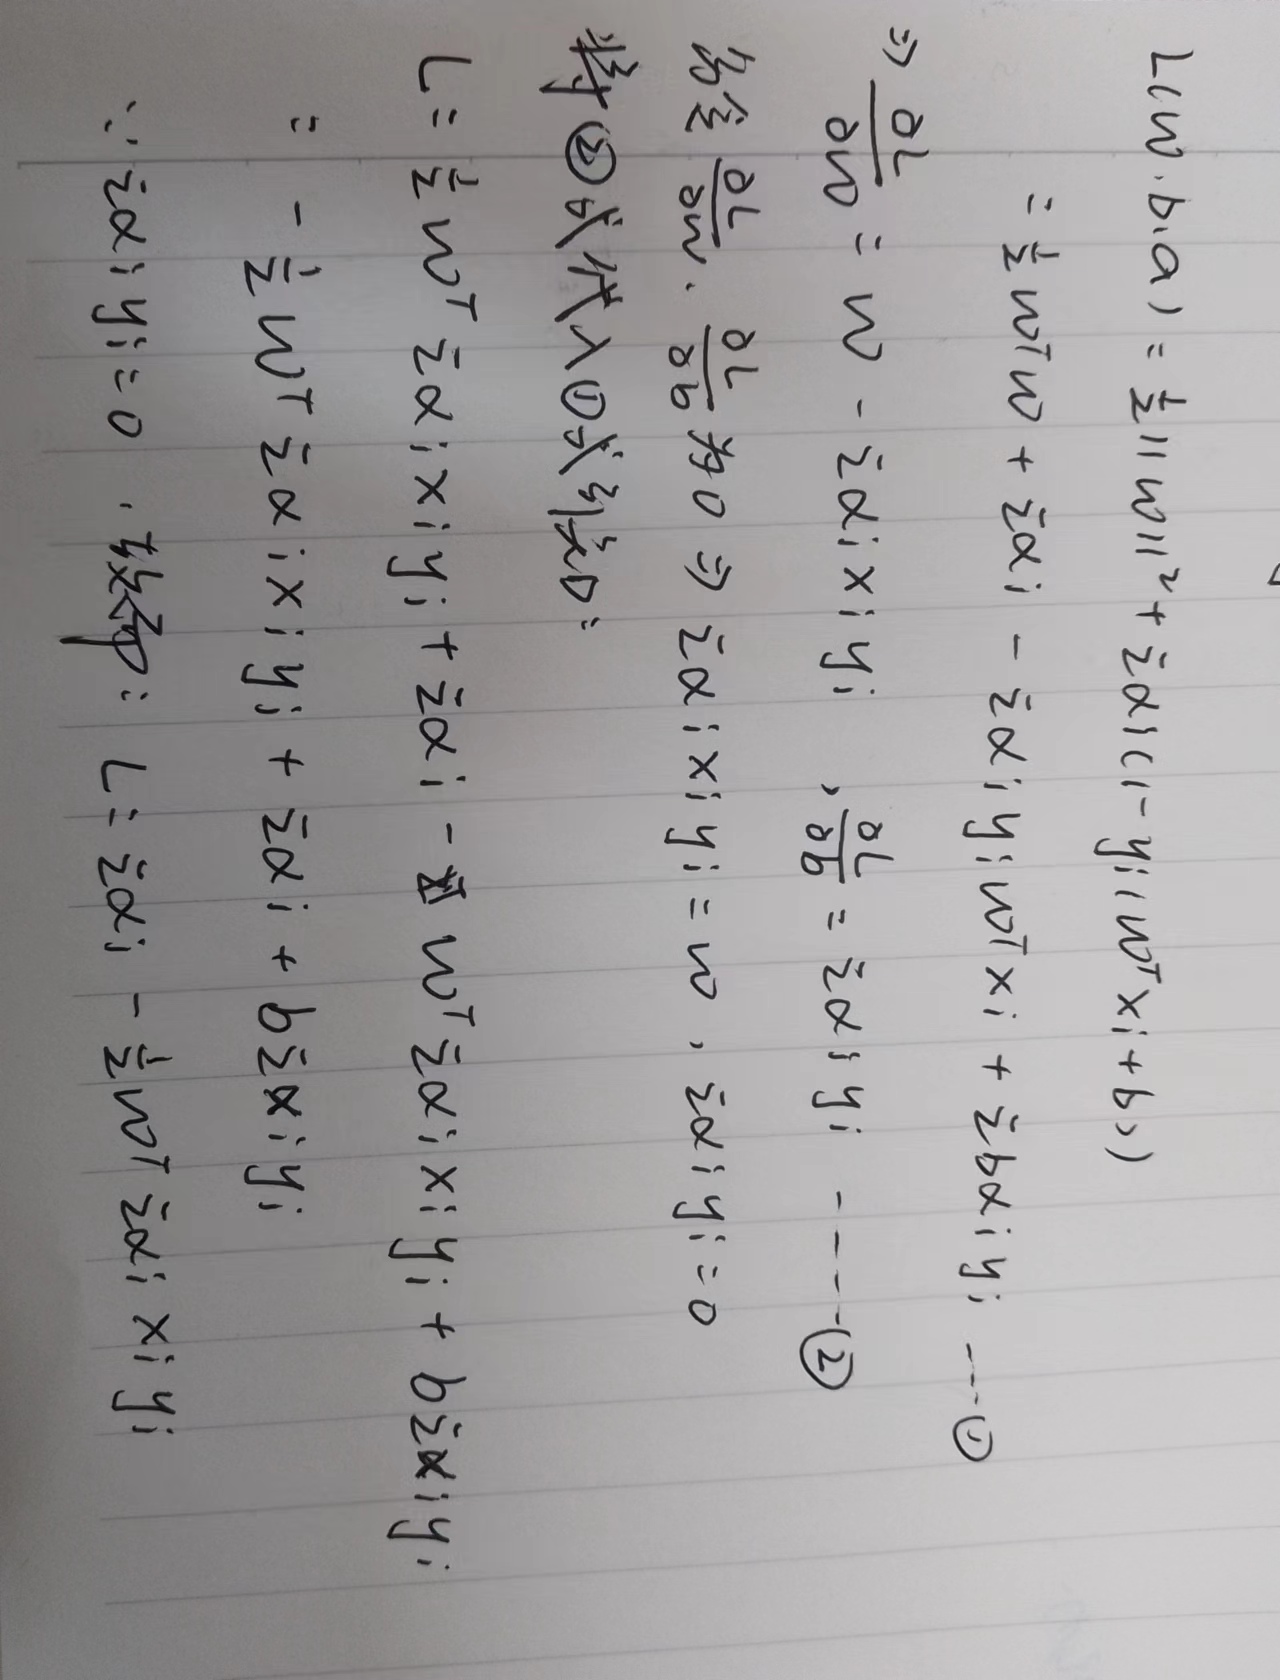 L(w,b,α) = ½||w||² + Σαi(1-yi(wᵀxi+b))
= ½wᵀw + Σαi - Σαiyiwᵀxi + Σbαiyi ---①
⇒ ∂L/∂w = w - Σαixiyi , ∂L/∂b = Σαiyi ----②
令 ∂L/∂w , ∂L/∂b 为0 ⇒ Σαixiyi = w , Σαiyi = 0
将②式代入①式得:
L = ½wᵀΣαixiyi + Σαi - wᵀΣαixiyi + bΣαiyi
= -½wᵀΣαixiyi + Σαi + bΣαiyi
∵ Σαiyi = 0 , : L = Σαi - ½wᵀΣαixiyi